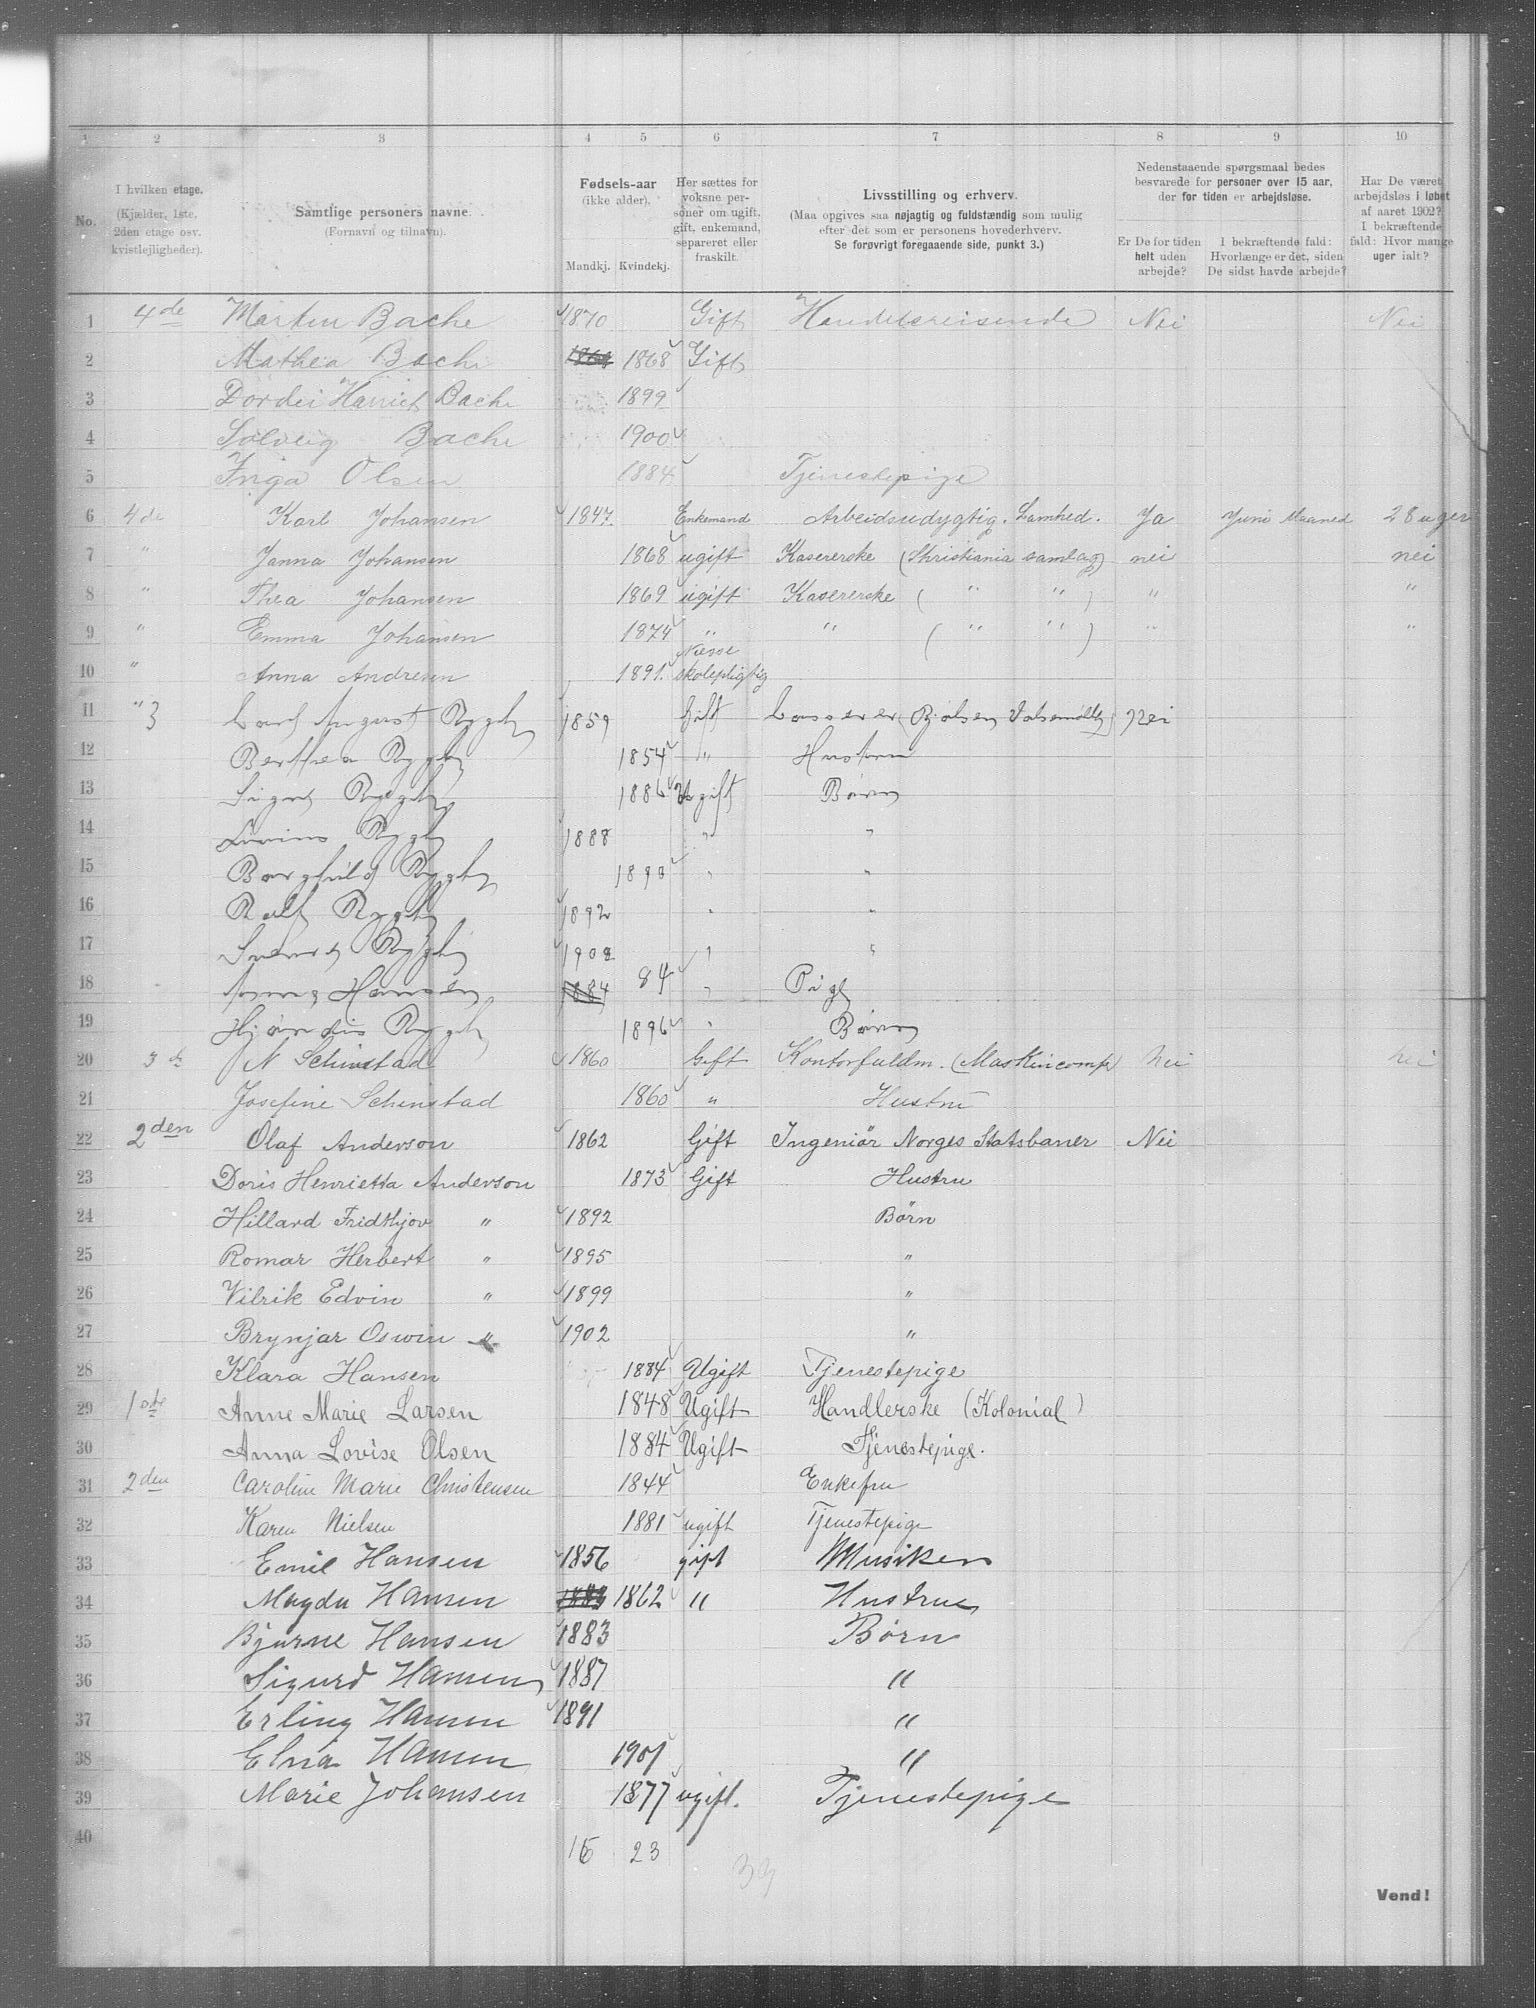 1 2 3 4 5 6 7 8 9 10
No.
I hvilken etage.
(Kjælder, 1ste, 2den etage osv. kvistlejligheder).
Samtlige personers navne.
(Fornavn og tilnavn).
Fødsels-aar
(ikke alder).
Mandkj. Kvindekj.
Her sættes for voksne personer om ugift, gift, enkemand, separeret eller fraskilt.
Livsstilling og erhverv.
(Maa opgives saa nøjagtig og fuldstændig som mulig efter det som er personens hovederhverv.
Se forøvrigt foregaaende side, punkt 3.)
Nedenstaaende spørgsmaal bedes besvarede for personer over 15 aar, der for tiden er arbejdsløse.
Er De for tiden helt uden arbejde?
I bekræftende fald: Hvorlænge er det, siden De sidst havde arbejde?
Har De været arbejdsløs i løbet af aaret 1902? I bekræftende fald: Hvor mange uger ialt?
1 4de Martin Bache 1870 Gift Handelsreisende Nei Nei
2 Mathea Bache 1868 Gift
3 Dordei Harriet Bache 1899
4 Solveig Bache 1900
5 Inga Olsen 1884 Tjenestepige
6 4de Karl Johansen 1847 Enkemand Arbeidsudygtig. Ja Juni Maaned 28 uger
7 " Janna Johansen 1868 ugift Kasererske (Christiania samlag) nei nei
8 " Thea Johansen 1869 ugift Kasererske ( " " ) " "
9 " Emma Johansen 1874 " " ( " " ) " "
10 " Anna Andresen 1891. Niese skolepligtig
11 " 3 August 1859 Gift nei
12 Berthea 1854 " Hustru
13 1886 Ugift Børn
14 1888 " "
15 Borghild 1890 " "
16 Ralf 1892 " "
17 1902 " "
18 Hansen 1884 84 " Pige
19 Hjørdis 1896 " Børn
20 3d N Schinstad 1860 Gift Kontorfuldm. (Maskincomp) nei nei
21 Josefine Schinstad 1860 " Hustru
22 2den Olaf Anderson 1862 Gift Ingeniör Norges Statsbaner Nei
23 Doris Henrietta Anderson 1873 Gift Hustru
24 Hillard Fridthjov " 1892 Børn
25 Romar Herbert " 1895 "
26 Vilrik Edvin " 1899 "
27 Brynjar Oswin " 1902 "
28 Klara Hansen 1884 Ugift Tjenestepige
29 1ste Anne Marie Larsen 1848 Ugift Handlerske (Kolonial)
30 Anna Lovise Olsen 1884 Ugift Tjenestepige.
31 2den Caroline Marie Christensen 1844 Enkefru
32 Karen Nielsen 1881 ugift Tjenestepige
33 Emil Hansen 1856 gift Musiker
34 Magda Hansen 1862 " Hustrue
35 Bjarne Hansen 1883 Børn
36 Sigurd Hansen 1887 "
37 Erling Hansen 1891 "
38 Elna Hansen 1901 "
39 Marie Johansen 1877 ugift. Tjenestepige
40
16 23
39
Vend!